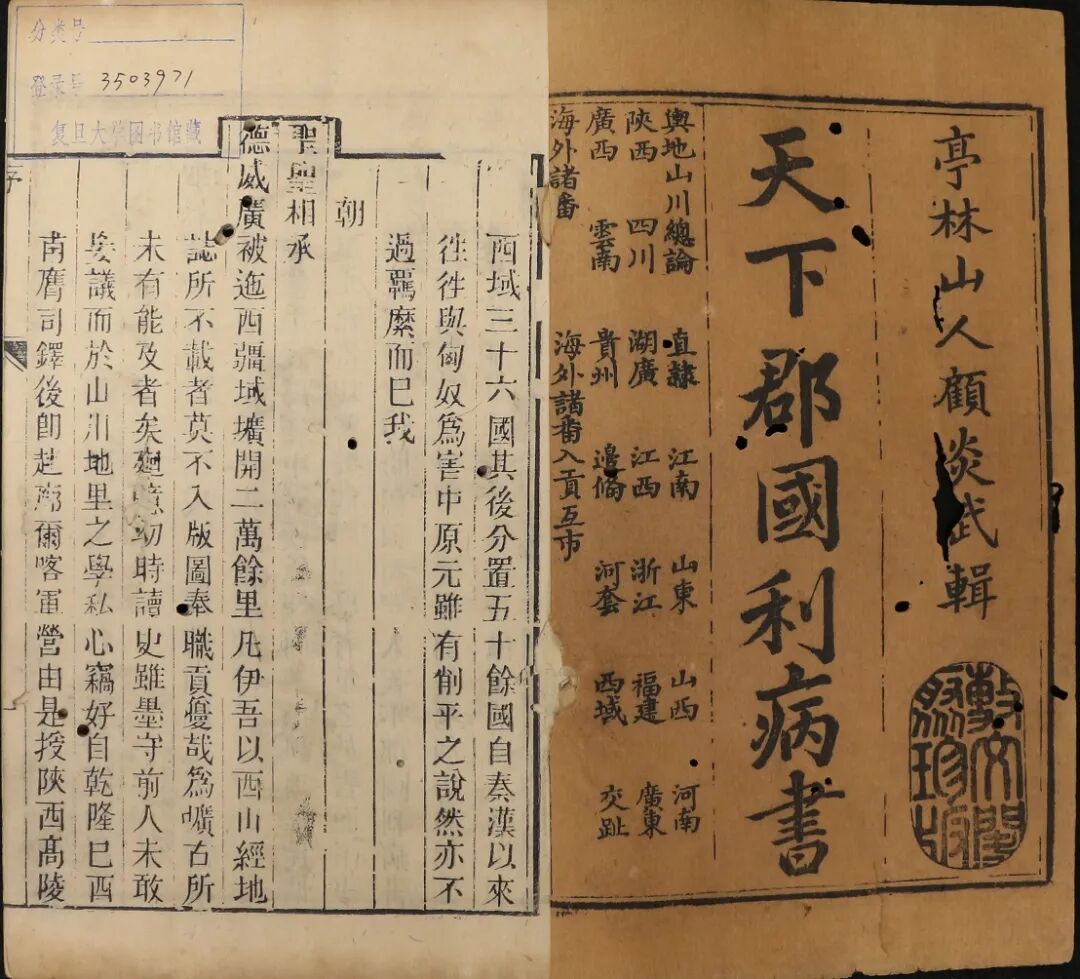 亭林山人顧炎武輯
天下郡國利病書
輿地山川總論 直隸 江南 山東 山西 河南
陝西 四川 湖廣 江西 浙江 福建 廣東
廣西 雲南 貴州 邊備 河套 西域 交趾
海外諸番 海外諸番入貢互市
敷文閣
聚珍版
分类号
登录号 3503971
复旦大学图书馆藏
西域三十六國其後分置五十餘國自秦漢以來
徃徃與匈奴爲害中原元雖有削平之說然亦不
過羈縻而巳我
朝
聖聖相承
德威廣被迤西疆域壙開二萬餘里凡伊吾以西山經地
誌所不載者莫不入版圖奉職貢優哉爲曠古所
未有能及者矣廻憶幼時讀史雖墨守前人未敢
妄議而於山川地里之學私心竊好自乾隆巳酉
南膺司鐸後卽赴廓爾喀軍營由是授陝西髙陵
序